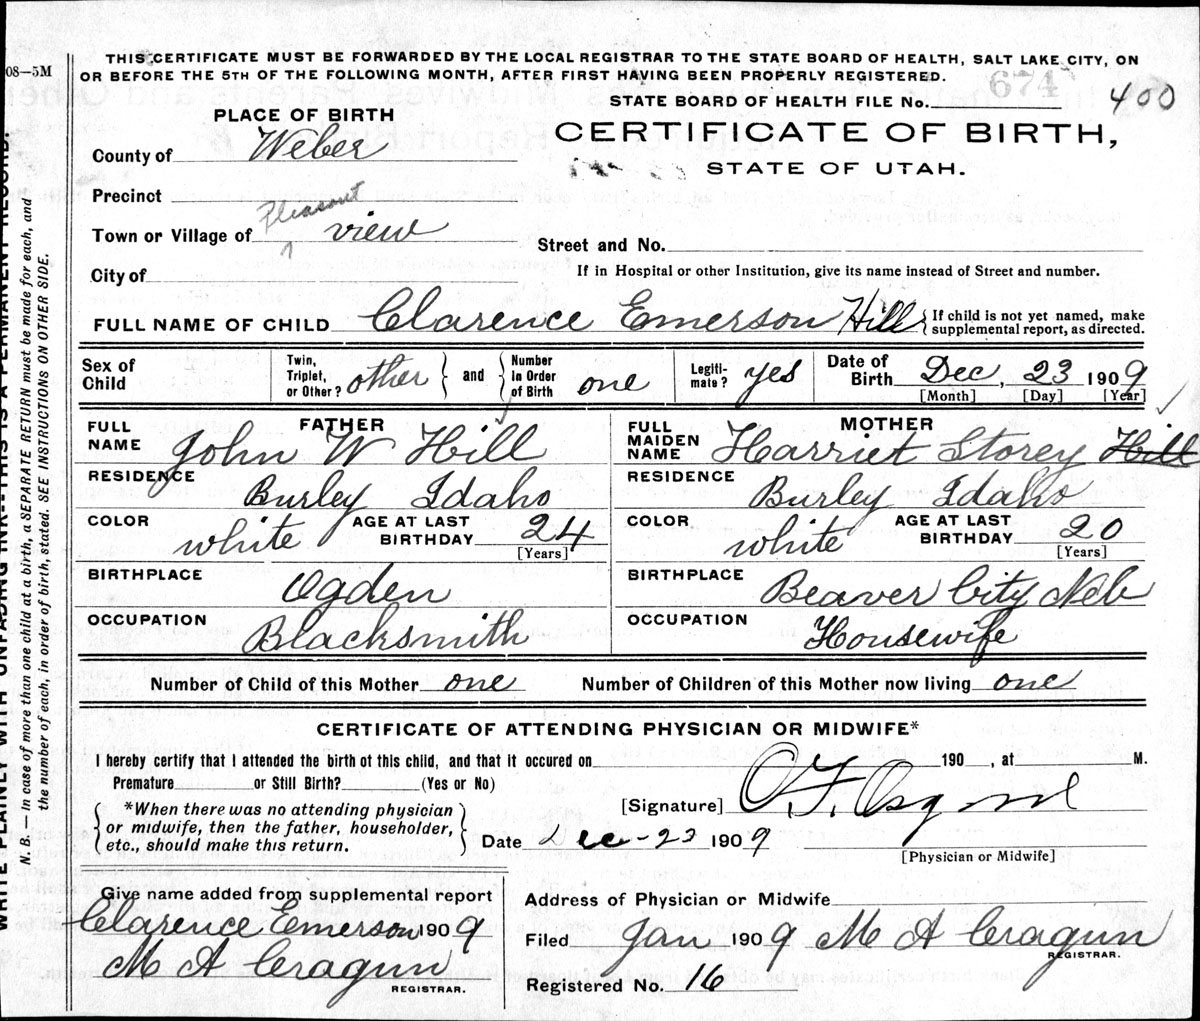 THIS CERTIFICATE MUST BE FORWARDED BY THE LOCAL REGISTRAR TO THE STATE BOARD OF HEALTH, SALT LAKE CITY, ON
OR BEFORE THE 5TH OF THE FOLLOWING MONTH, AFTER FIRST HAVING BEEN PROPERLY REGISTERED.
08—5M
STATE BOARD OF HEALTH FILE No. 674 400
PLACE OF BIRTH
CERTIFICATE OF BIRTH,
STATE OF UTAH.
County of Weber
Precinct
Town or Village of Pleasant view
Street and No.
City of
If in Hospital or other Institution, give its name instead of Street and number.
FULL NAME OF CHILD Clarence Emerson Hill { If child is not yet named, make
supplemental report, as directed.
Sex of
Child
Twin,
Triplet,
or Other? other } and { Number
in Order
of Birth one
Legiti-
mate? yes
Date of
Birth Dec, 23 1909
[Month] [Day] [Year]
FATHER
FULL
NAME John W Hill
RESIDENCE
Burley Idaho
COLOR white
AGE AT LAST
BIRTHDAY 24
[Years]
BIRTHPLACE
Ogden
OCCUPATION
Blacksmith
MOTHER
FULL
MAIDEN
NAME Harriet Storey Hill
RESIDENCE
Burley Idaho
COLOR white
AGE AT LAST
BIRTHDAY 20
[Years]
BIRTHPLACE
Beaver City Neb
OCCUPATION
Housewife
Number of Child of this Mother one Number of Children of this Mother now living one
CERTIFICATE OF ATTENDING PHYSICIAN OR MIDWIFE*
I hereby certify that I attended the birth of this child, and that it occured on 190 , at M.
Premature or Still Birth? (Yes or No)
{ *When there was no attending physician
or midwife, then the father, householder,
etc., should make this return. }
[Signature] O. F. Osgood
Date Dec-23 1909
[Physician or Midwife]
Give name added from supplemental report
Clarence Emerson 1909
M A Cragun
REGISTRAR.
Address of Physician or Midwife
Filed Jan 1909 M A Cragun
REGISTRAR.
Registered No. 16
WRITE PLAINLY WITH UNFADING INK--THIS IS A PERMANENT RECORD.
N. B.—In case of more than one child at a birth, a SEPARATE RETURN must be made for each, and
the number of each, in order of birth, stated. SEE INSTRUCTIONS ON OTHER SIDE.